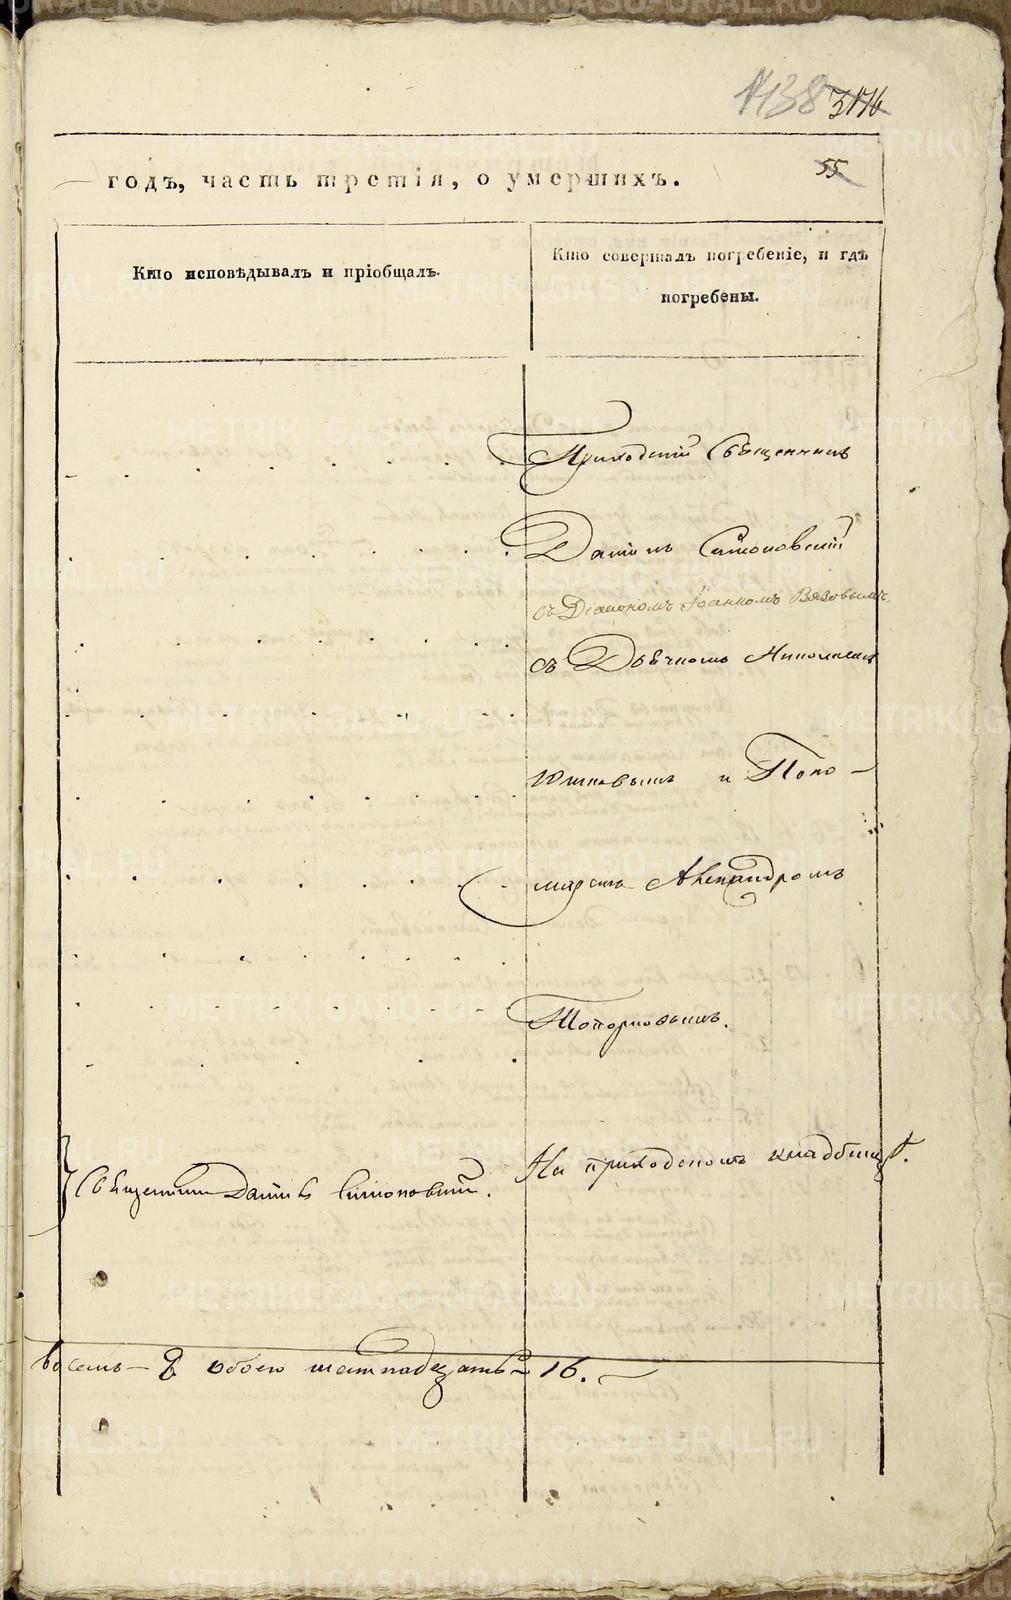 1138 3176
55
годъ, часть третія, о умершихъ.
Кто исповѣдывалъ и пріобщалъ.
Кто совершалъ погребеніе, и гдѣ
погребены.
Приходскій Священникъ
Даніилъ Симоновскій
съ Діакономъ Іоанномъ Вязовымъ
съ Дьячкомъ Николаемъ
и Поно-
маремъ Александромъ
Топорковымъ.
На приходскомъ кладбищѣ.
Священникъ Даніилъ Симоновскій.
восемь - 8 обоего шестнадцать - 16.
METRIKI.GASO-URAL.RU